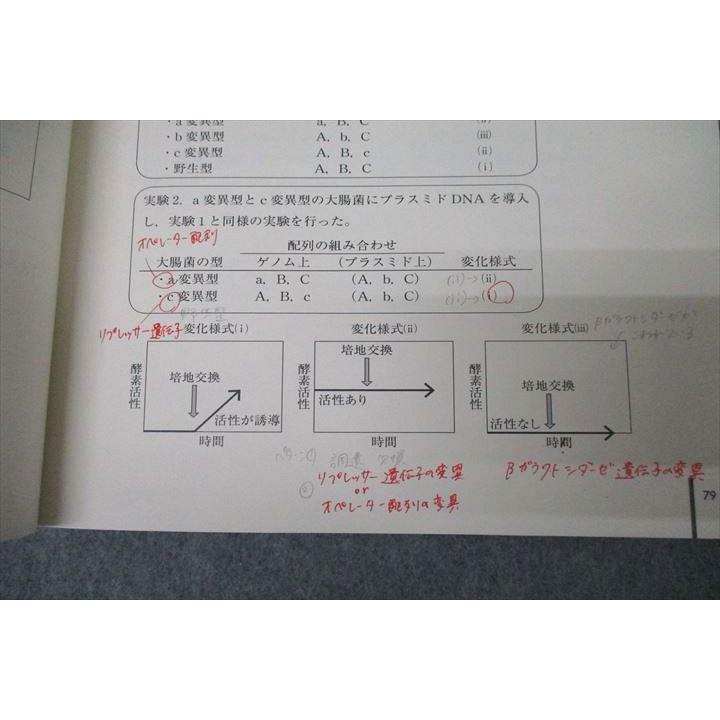 ・a 変異型 a, B, C (ii)
・b 変異型 A, b, C (iii)
・c 変異型 A, B, c (ii)
・野生型 A, B, C (i)
実験2. a 変異型と c 変異型の大腸菌にプラスミド DNA を導入
し, 実験1と同様の実験を行った。
オペレーター配列
配列の組み合わせ
大腸菌の型 ゲノム上 (プラスミド上) 変化様式
・a 変異型 a, B, C (A, b, C) (ii)→(ii)
・c 変異型 A, B, c (A, b, C) (ii)→(i)
野生型
リプレッサー遺伝子
変化様式(i) 変化様式(ii) 変化様式(iii)
酵素活性 培地交換 活性が誘導 時間
酵素活性 培地交換 活性あり 時間
酵素活性 培地交換 活性なし 時間
リプレッサー遺伝子の変異
or
オペレーター配列の変異
βガラクトシダーゼ遺伝子の変異
79